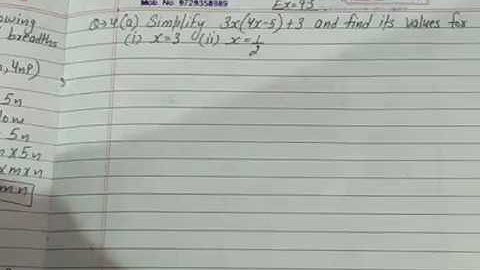 Mob. No. 9729350989
Ex=93
owing
breadths
n, 4np)
5n
5n
m x 5n
x m x n
mn
Q→4 (a) Simplify 3x(4x-5)+3 and find its values for
(i) x=3 (ii) x=1/2